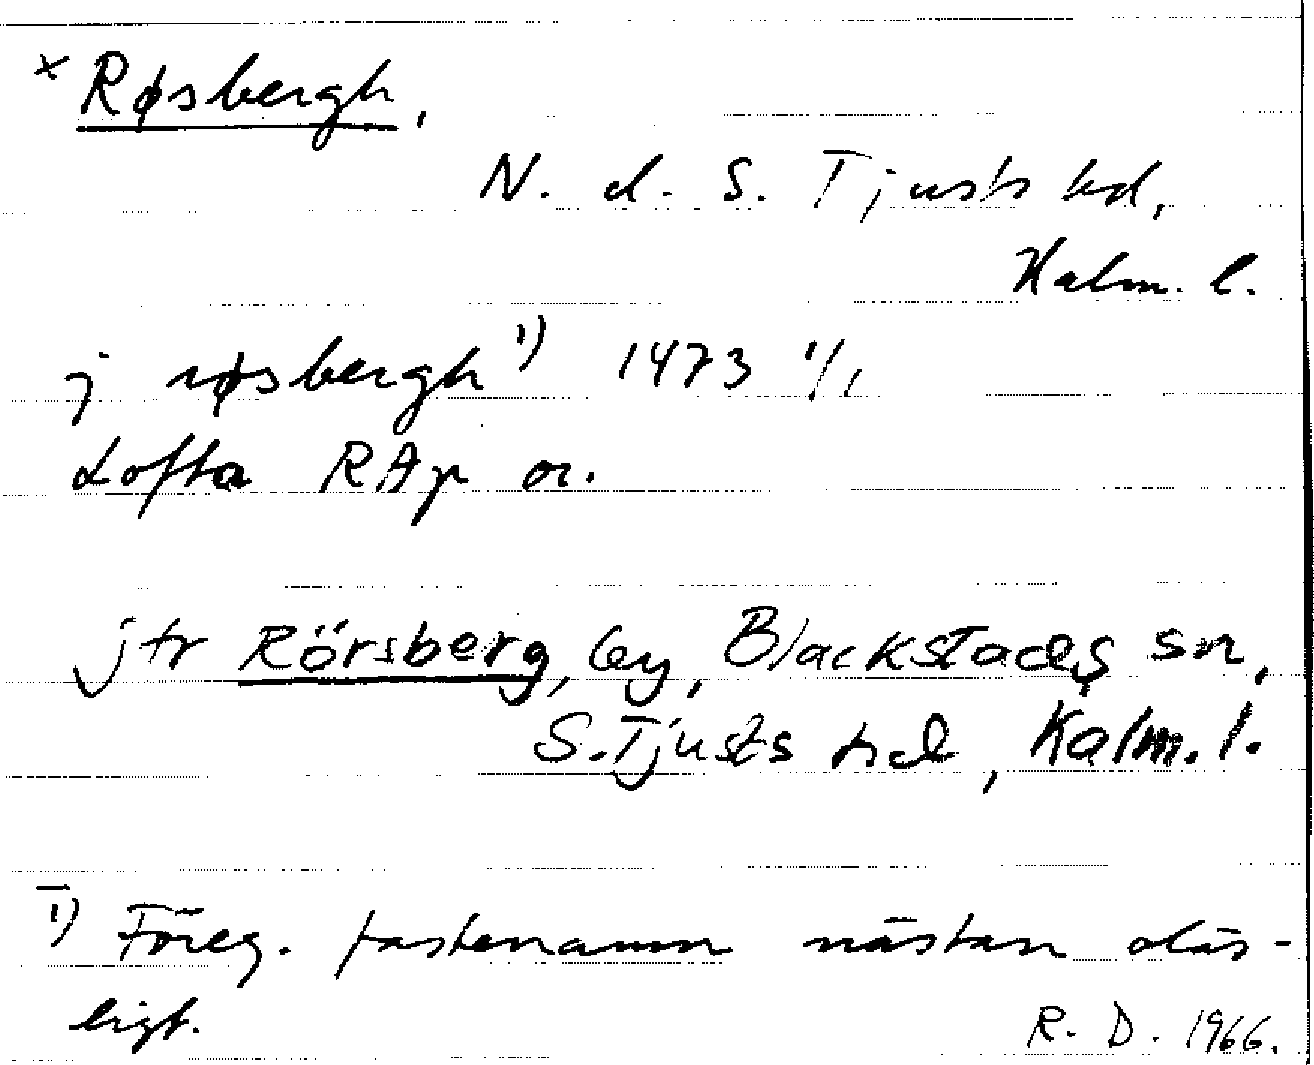 × Røsbergh,
N. el. S. Tjusts hd,
Kalm. l.
j røsbergh 1) 1473 1/1
Lofta RAp or.
jtr Rörsberg, by, Blackstads sn,
S. Tjusts hd, Kalm. l.
1) Föreg. fastenamn nästan oläs-
ligt.
R. D. 1966.